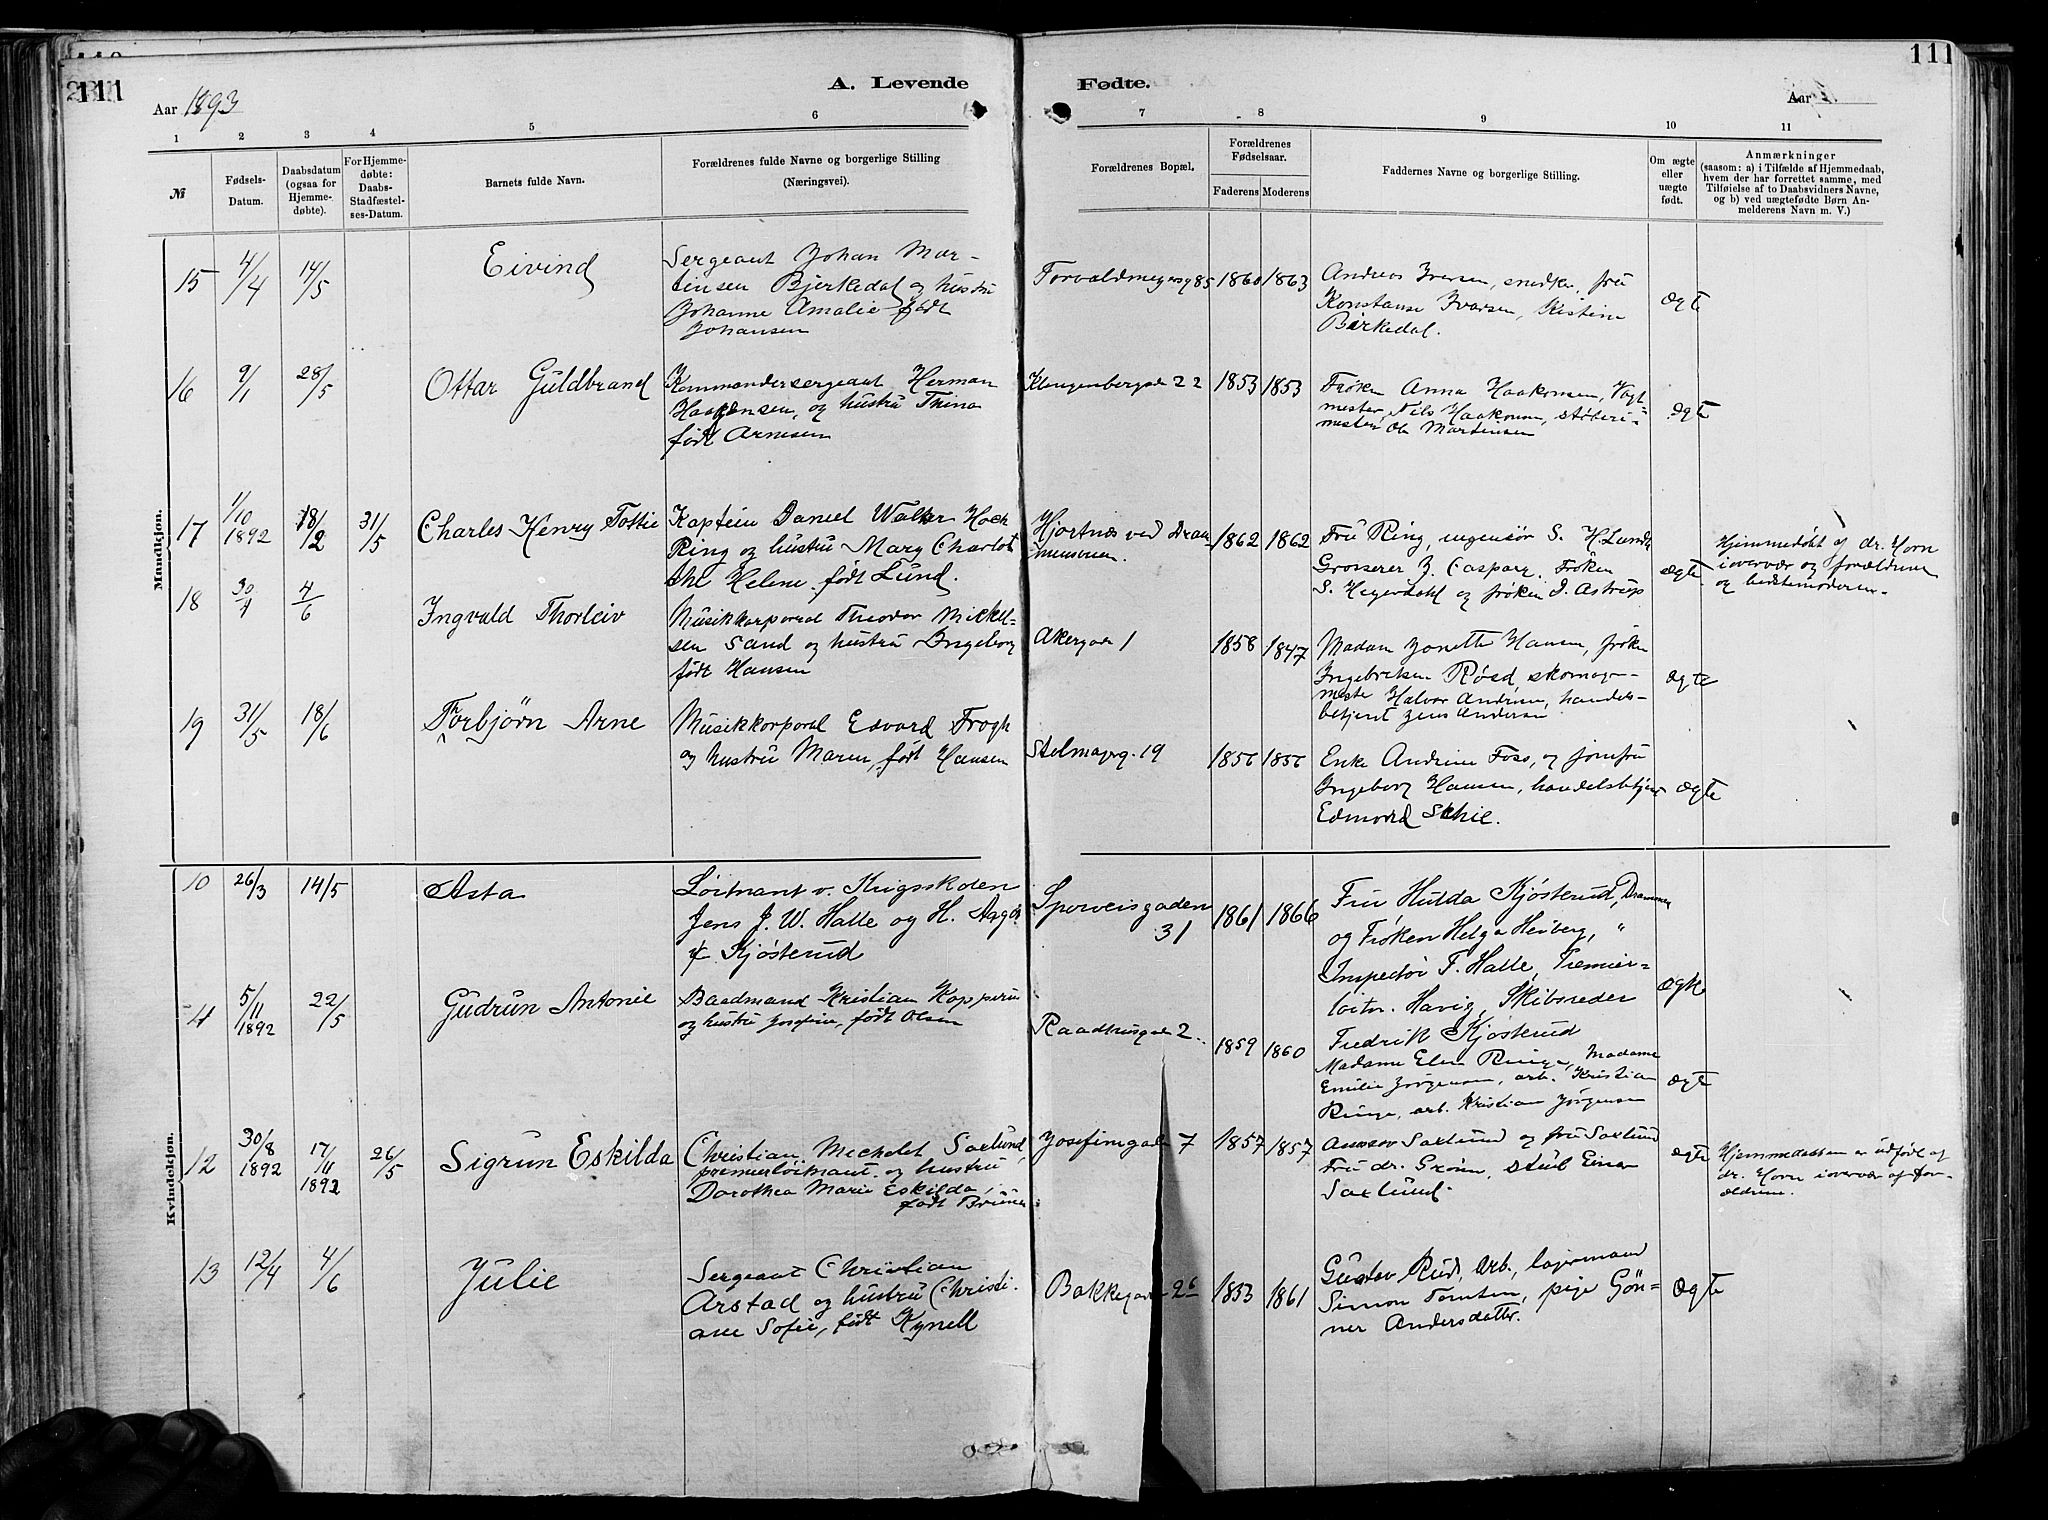 111
111
A. Levende
Fødte.
Aar 1893
Aar
1 2 3 4 5 6 7 8 9 10 11
№
Fødsels-
Datum.
Daabsdatum
(ogsaa for
Hjemme-
døbte).
For Hjemme-
døbte:
Daabs-
Stadfæstel-
ses-Datum.
Barnets fulde Navn.
Forældrenes fulde Navne og borgerlige Stilling
(Næringsvei).
Forældrenes Bopæl.
Forældrenes
Fødselsaar.
Faderens Moderens
Faddernes Navne og borgerlige Stilling.
Om ægte
eller
uægte
født.
Anmærkninger
(saasom: a) i Tilfælde af Hjemmedaab,
hvem der har forrettet samme, med
Tilføielse af to Daabsvidners Navne,
og b) ved uægtefødte Børn An-
melderens Navn m. V.)
Mandkjøn.
15 4/4 14/5 Eivind
Sergeant Johan Mar-
tinsen Bjerkedal og hustru
Johanne Amalie født
Johansen
Torvaldmeyersg 85 1860 1863
Andreas Iversen, snedker, fru
Konstanse Ivarsen, Kistine
Birkedal.
ægte
16 9/1 28/5 Ottar Guldbrand
Kommandersergeant Herman
Haakonsen, og hustru Thina
født Arnesen
Klingenberggaden 22 1853 1853
Frøken Anna Haakonsen, Vogt-
mester Nils Haakonsen, støberi-
mester Ole Martinsen
ægte
17 1/10 1892 18/2 31/5 Charles Henry Tottie
Kaptein Daniel Walker Hoch
Ring og hustru Mary Charlot
the Helene født Lund.
Hjortnæs ved Dram-
mensveien. 1862 1862
Fru Ring, ingeniør S. H. Lund
Grosserer J. Caspary. Frøken
S. Heyerdahl og frøken I. Astrup
ægte
Hjemmedøbt af dr. Horn
i overvær og forældrene
og bedstemoderen.
18 30/4 4/6 Ingvald Thorleiv
Musikkorporal Theodor Mikkel-
sen Sand og hustru Ingeborg
født Hansen
Akergaden 1 1858 1847
Madam Jonette Hansen, frøken
Ingebretsen Røsd skomager-
mester Halvor Andersen, handels-
betjent Jens Andersen
ægte
19 31/5 18/6 Torbjørn Arne
Musikkorporal Edvard Frogh
og hustru Maren, født Hansen
Stelmagerg. 19 1856 1856
Enke Andrine Foss, og jomfru
Ingeborg Hansen, handelsbetjent
Edmond Schie.
ægte
Kvindekjøn.
10 26/3 14/5 Asta
Løitnant v. Krigsskolen
Jens J. W. Halle og H. Aagot
f. Kjøsterud
Sporveisgaden
31 1861 1866
Fru Hulda Kjøsterud, Drammen
og Frøken Helga Heiberg, "
Inspektør F. Halle, Premier-
løitn. Havig, Skibsreder
Fredrik Kjøsterud
ægte
4 5/11 1892 22/5 Gudrun Antonie
Baadmand Kristian Kopperud
og hustru Josefine, født Olsen
Raadhusgaden 2. 1859 1860
Madame Elen Ringe, Madame
Emilie Jørgensen, arb. Kristian
Ringe, arb. Kristian Jørgensen
ægte
12 30/8 1892 17/11 1892 26/5 Sigrun Eskilda
Christian Mechelet Saxlund,
premierløitnant og hustru
Dorothea Marie Eskilda,
født Bruun
Josefinegaden 7 1857 1857
Assessor Saxlund og fru Saxlund
Fru dr. Grønn, stud Einar
Saxlund.
ægte
Hjemmedaaben er udført af
dr. Horn i overvær af for-
ældrene.
13 12/4 4/6 Julie
Sergeant Christian
Arstad og hustru Christi-
ane Sofie, født Kynell
Bakkegaden 26 1853 1861
Gustav Rud, arb., lagermand
Simon Tomten, pige Gün-
ner Andersdatter.
ægte